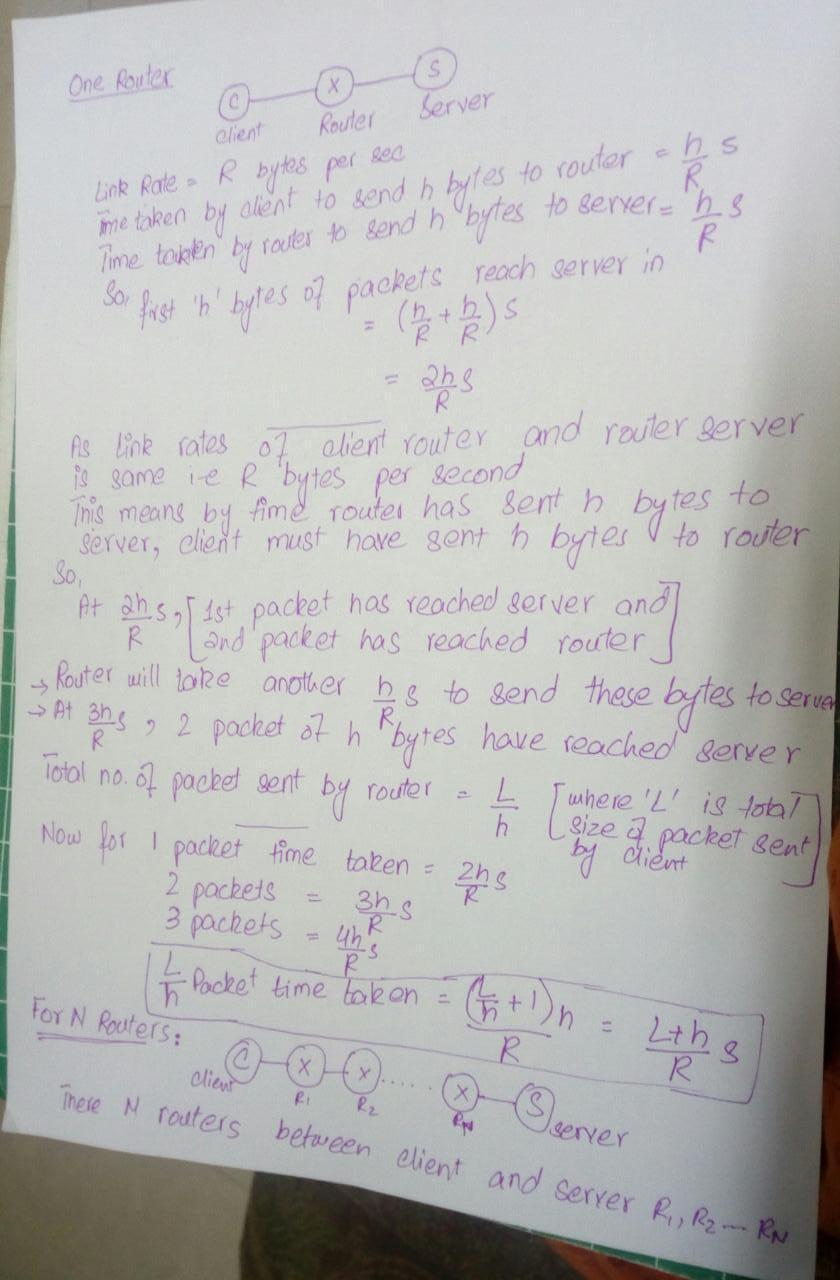 One Router
C X S
client Router Server
Link Rate = R bytes per sec
Time taken by client to send h bytes to router = h/R s
Time taken by router to send h bytes to server = h/R s
So, first 'h' bytes of packets reach server in
= (h/R + h/R) s
= 2h/R s
As link rates of client router and router server
is same i-e R bytes per second
This means by time router has sent h bytes to
server, client must have sent h bytes to router
So,
At 2h/R s, [1st packet has reached server and
2nd packet has reached router]
→ Router will take another h/R s to send these bytes to server
→ At 3h/R s, 2 packet of h bytes have reached server
Total no. of packet sent by router = L/h [where 'L' is total
size of packet sent
by client]
Now for 1 packet time taken = 2h/R s
2 packets = 3h/R s
3 packets = 4h/R s
L/h Packet time taken = (L/h + 1)h/R = L+h/R s
For N Routers:
client C X X ..... X S server
R1 R2 RN
There N routers between client and server R1, R2 --- RN